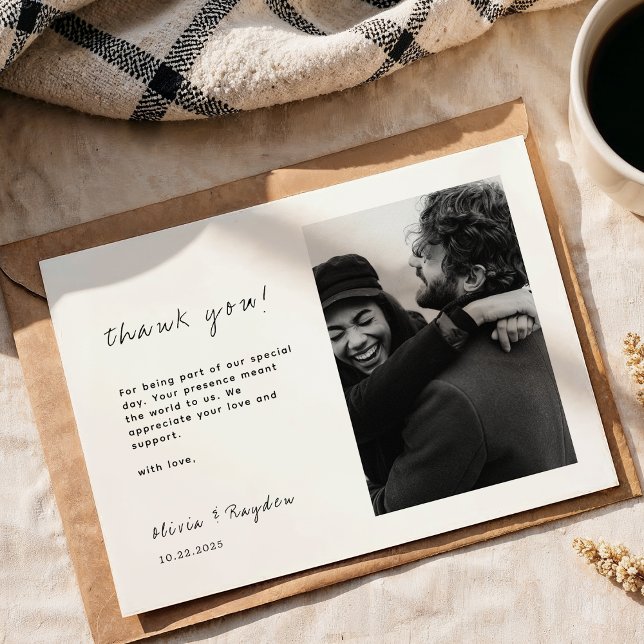 thank you!
For being part of our special
day. Your presence meant
the world to us. We
appreciate your love and
support.
with love,
Olivia & Rayden
10.22.2025